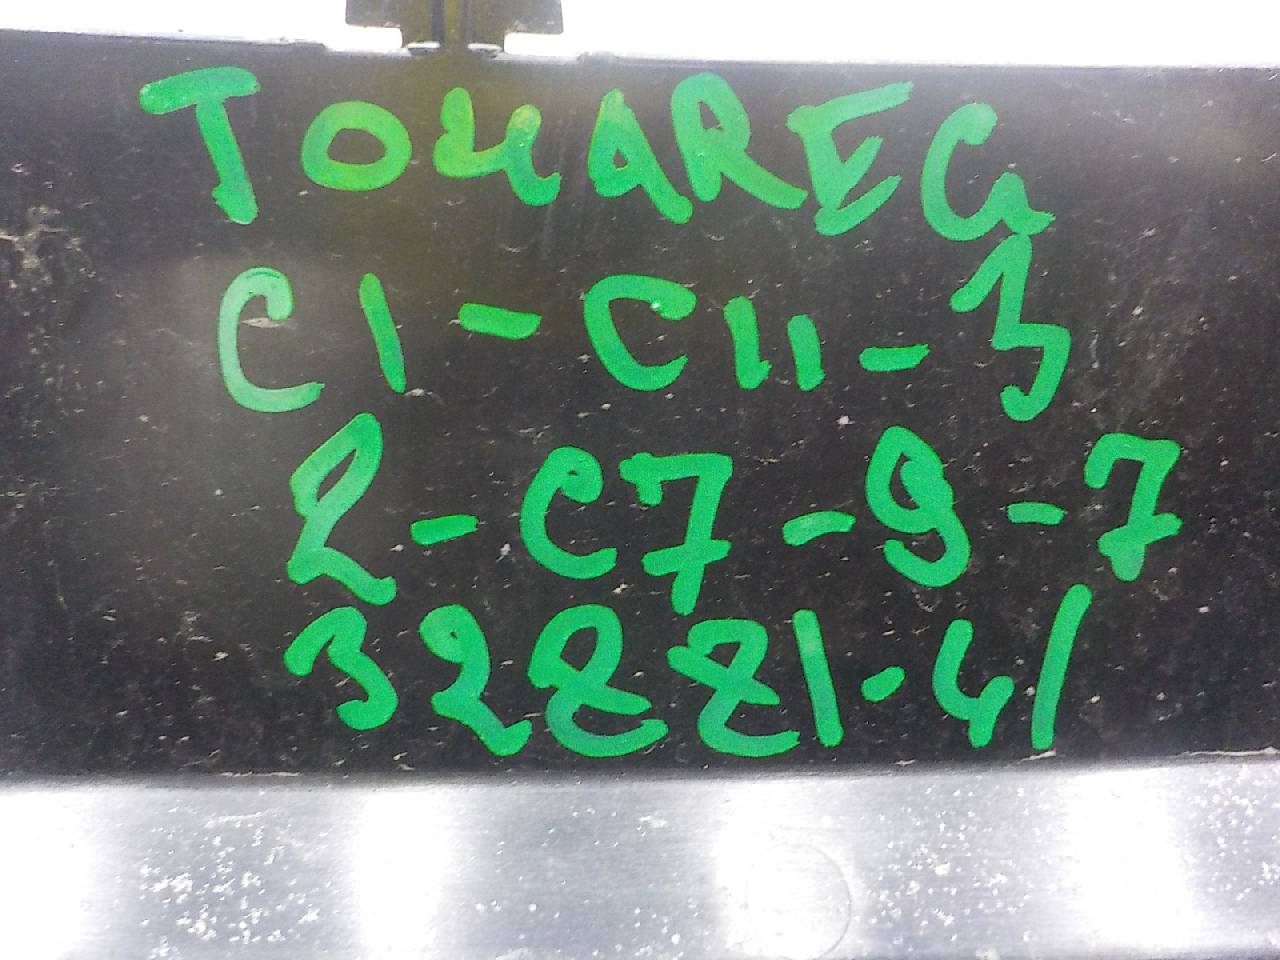 TOUAREG
C1-C11-3
2-C7-9-7
32881-41